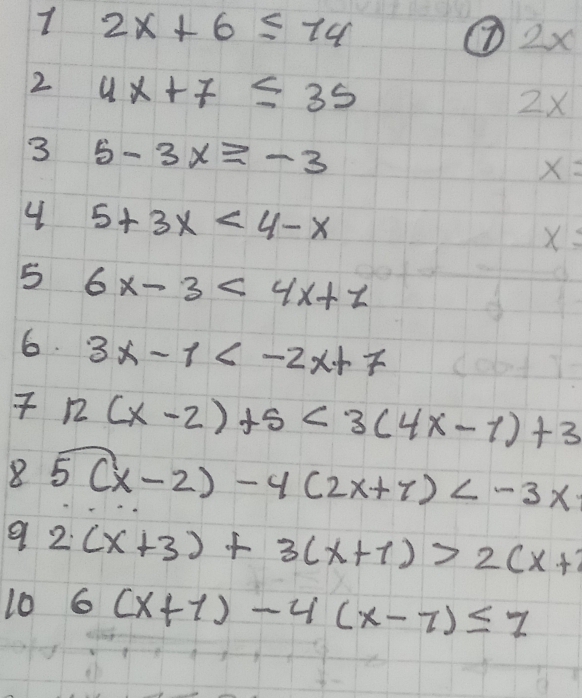 1 2x + 6 ≤ 14
2 4x + 7 ≤ 35
3 5 - 3x ≥ - 3
4 5 + 3x < 4 - x
5 6x - 3 < 4x + 1
6. 3x - 1 < -2x + 7
7 12 (x - 2) + 5 < 3(4x - 1) + 3
8 5 (x - 2) - 4 (2x + 1) < - 3x
9 2.(x + 3) + 3(x + 1) > 2(x +
10 6 (x + 1) - 4 (x - 1) ≤ 1
① 2x
2x
x =
x =